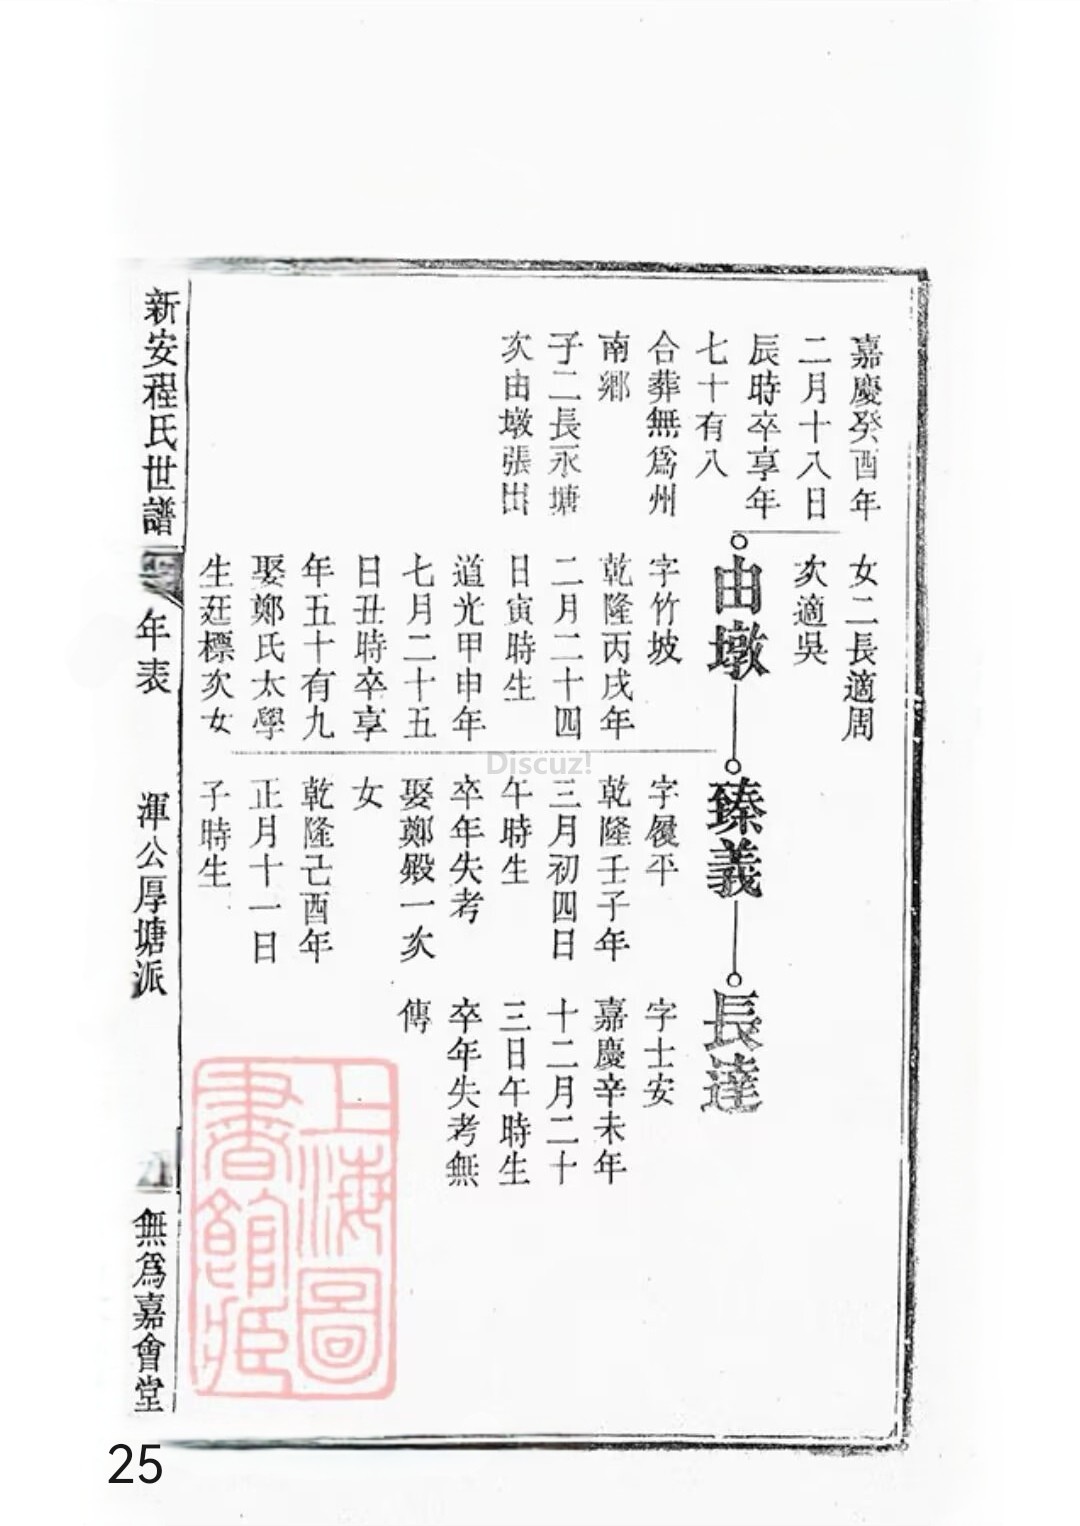 嘉慶癸酉年
二月十八日
辰時卒享年
七十有八
合葬無為州
南鄉
子二長永塘
次由墩張出
女二長適周
次適吳
由墩
字竹坡
乾隆丙戌年
二月二十四
日寅時生
道光甲申年
七月二十五
日丑時卒享
年五十有九
娶鄭氏太學
生廷標次女
臻義
字履平
乾隆壬子年
三月初四日
午時生
卒年失考
娶鄭殿一次
女
乾隆己酉年
正月十一日
子時生
長達
字士安
嘉慶辛未年
十二月二十
三日午時生
卒年失考無
傳
新安程氏世譜
年表
渾公厚塘派
無為嘉會堂
上海圖
書館藏
Discuz!
25